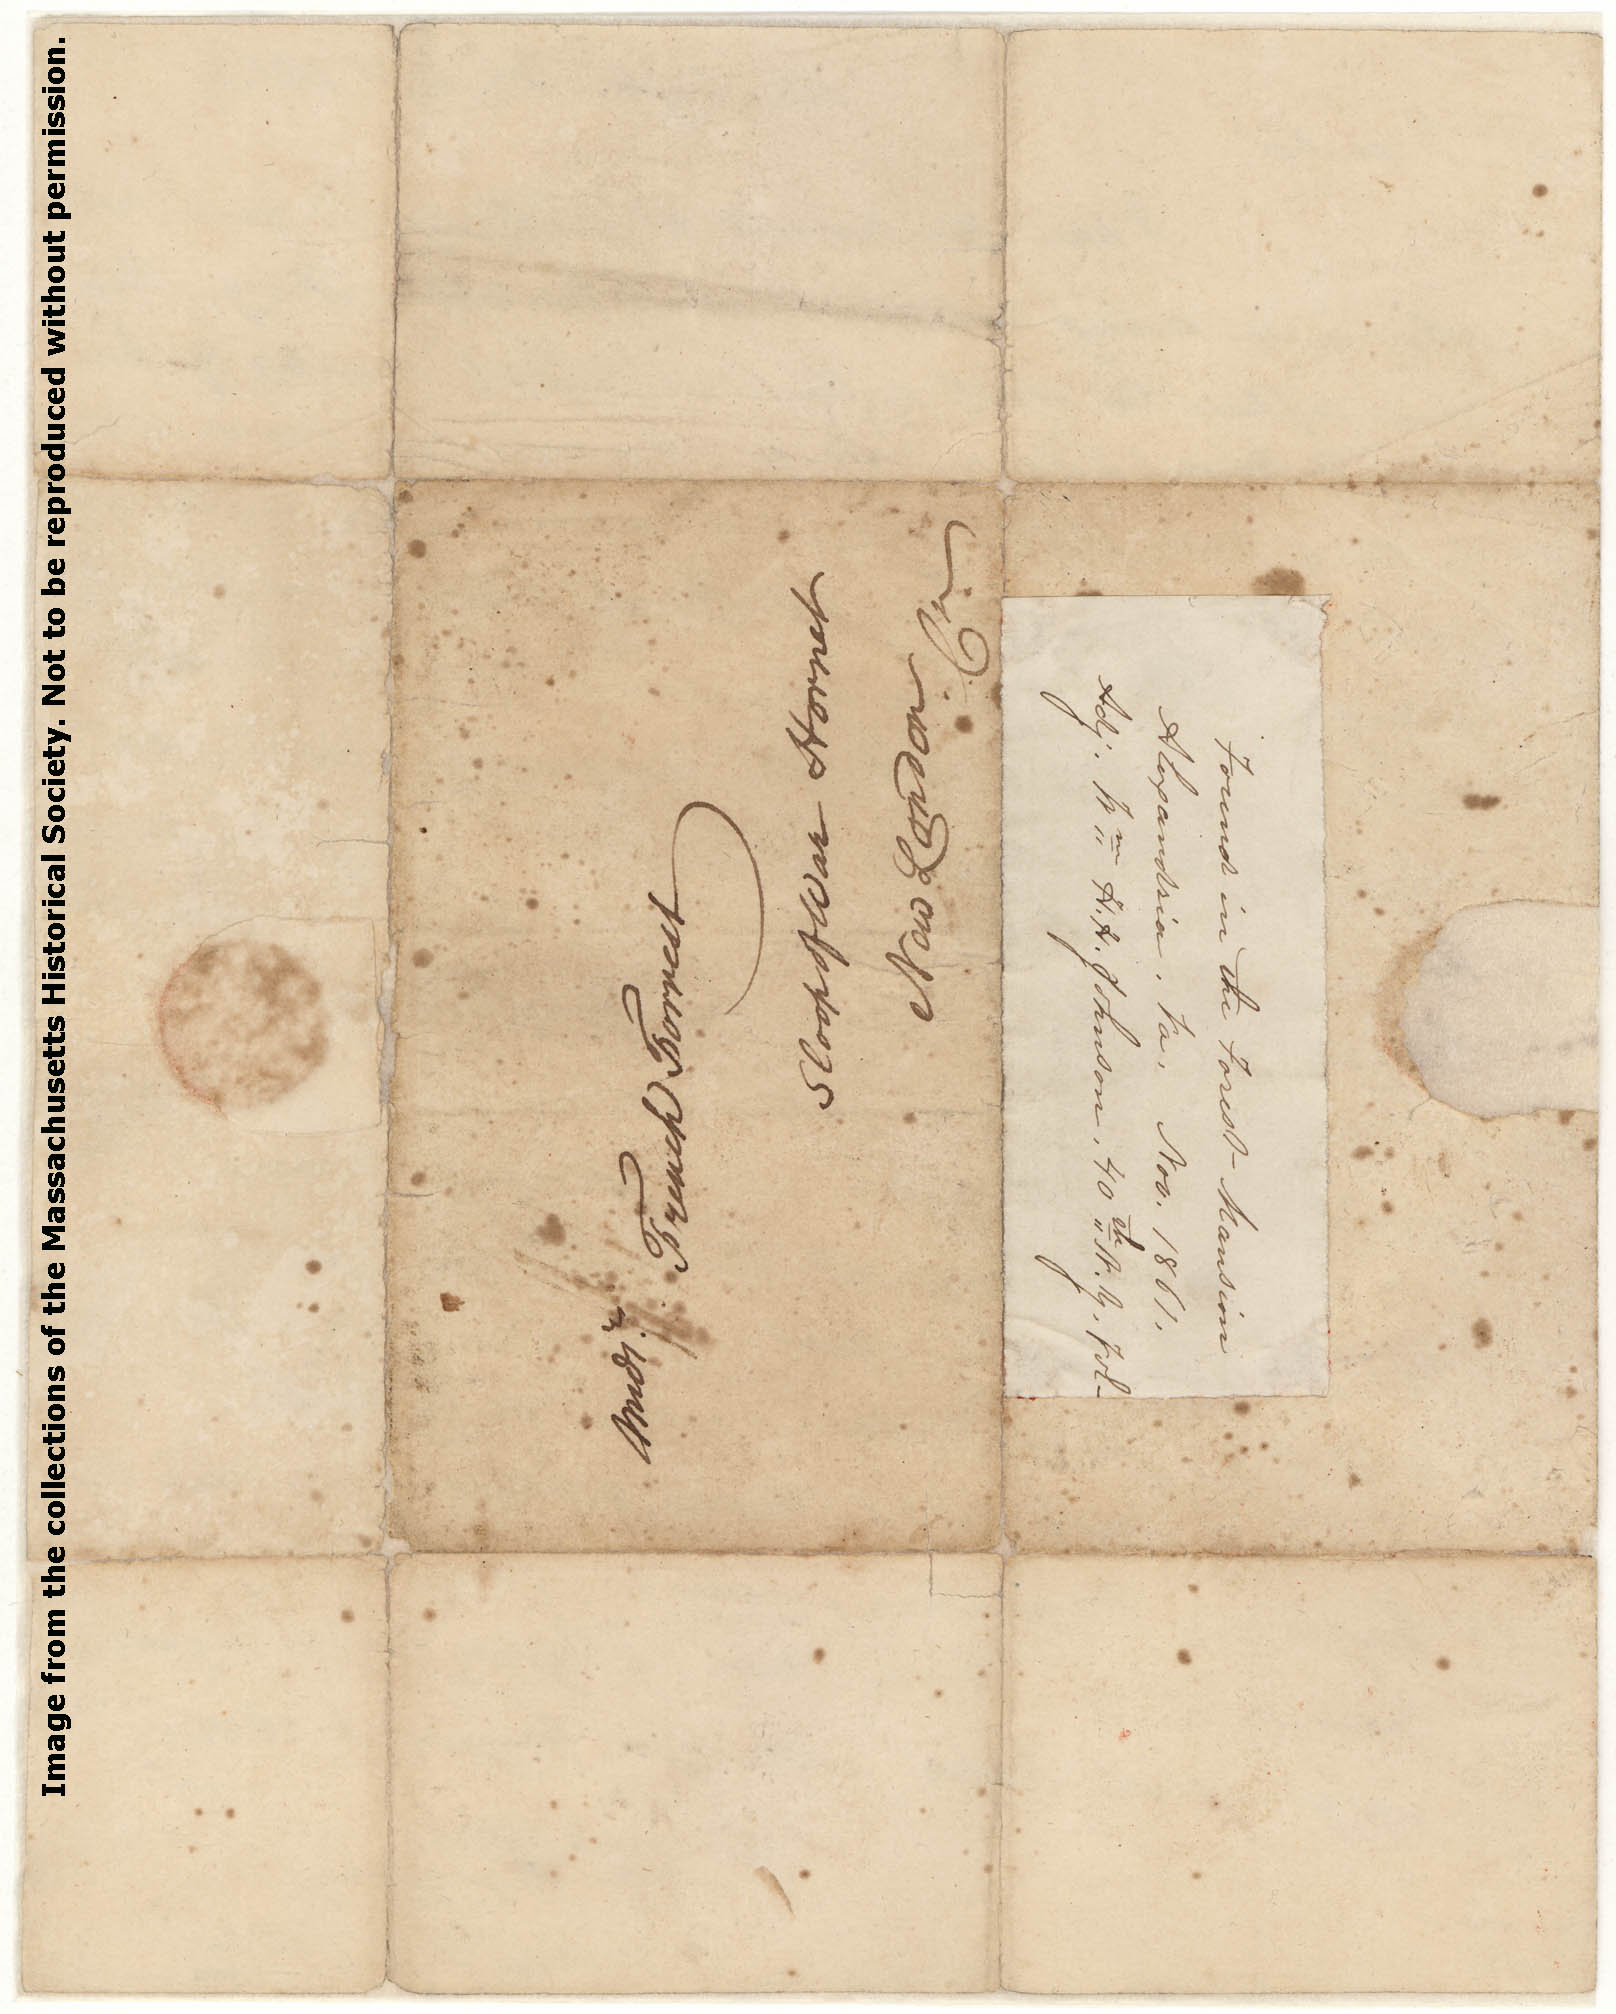 Image from the collections of the Massachusetts Historical Society. Not to be reproduced without permission.
Midn
French Forrest
Sloop of war Hornet
New London
Ct.
Found in the Forest Mansion
Alexandria. Va. Nov. 1861.
Adj. Wm H. H. Johnson. 40th N. Y. Vol-